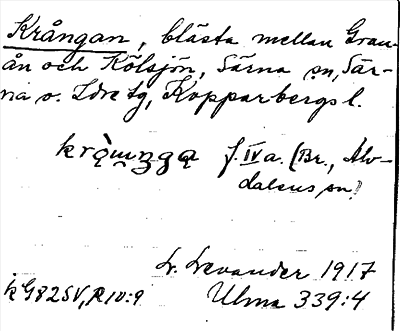 Krångan, blästa mellan Gran-
ån och Kölsjön, Särna sn, Sär-
na o. Idre tg, Kopparbergs l.
krɑ̀ɯŋga f. IV a. (Br., Älv-
dalens sn)
L. Levander 1917
k G82SV, R10:9
Ulma 339:4